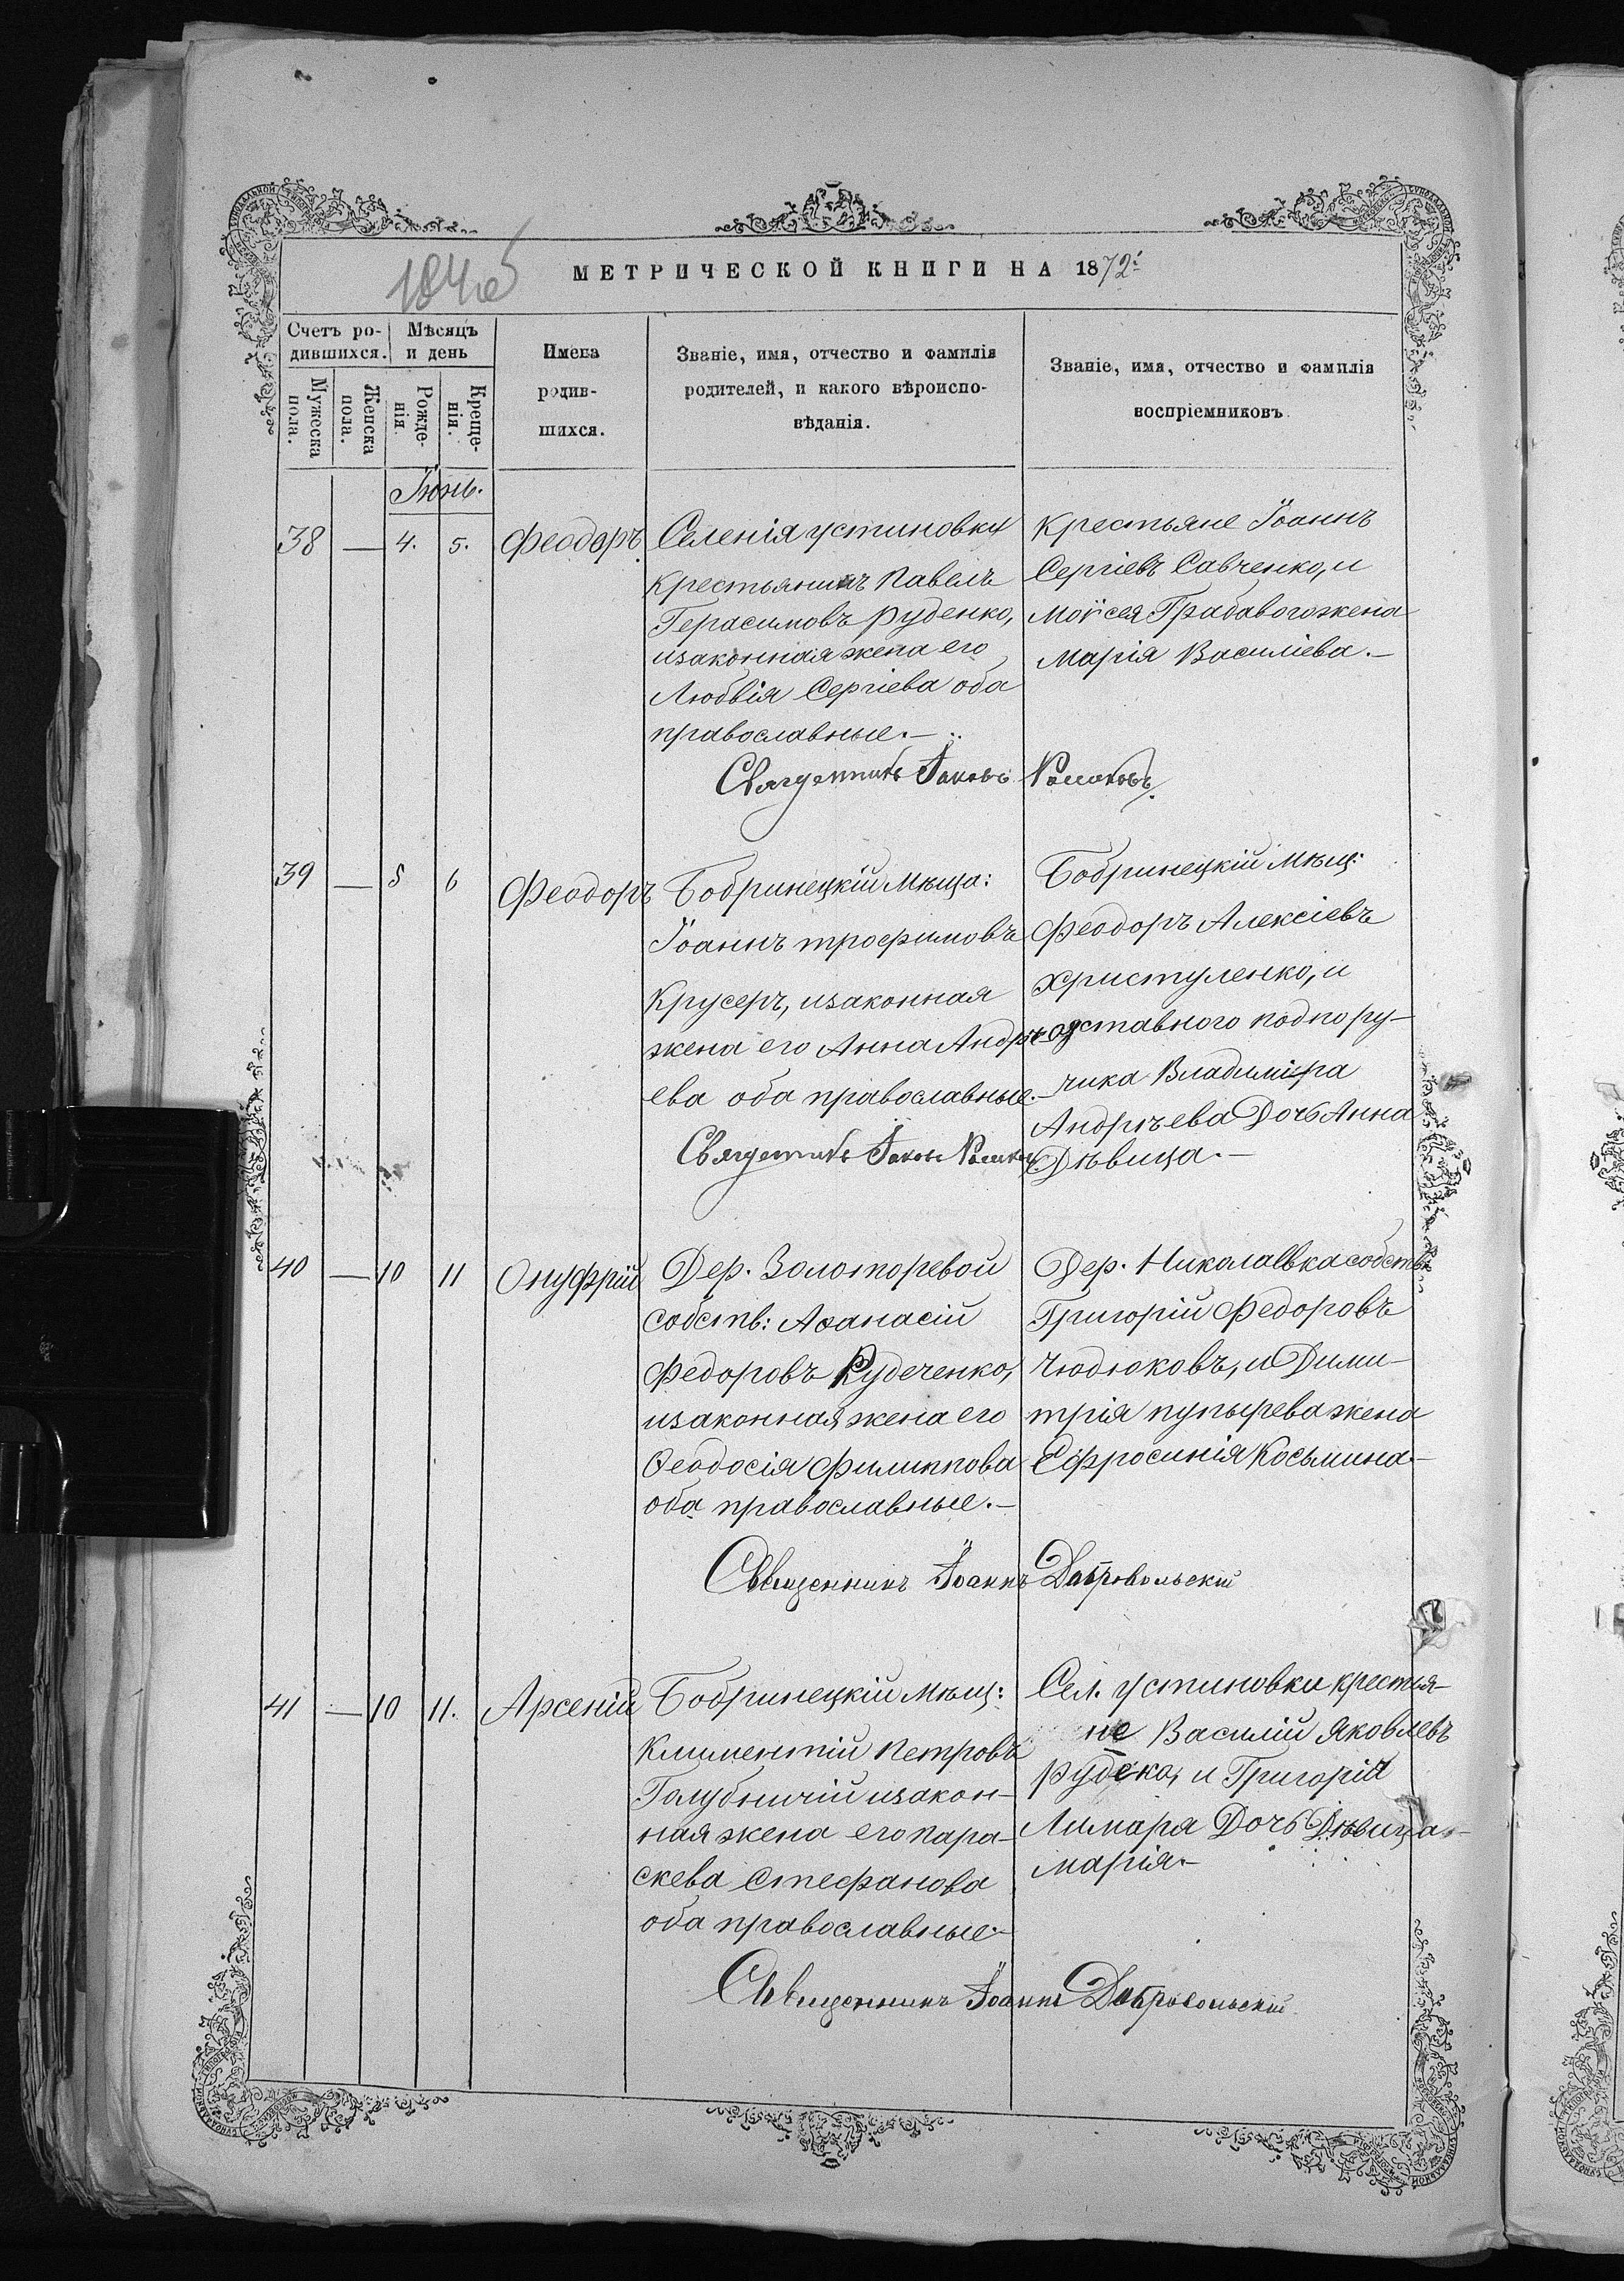 184 об
МЕТРИЧЕСКОЙ КНИГИ НА 1872:
Счетъ ро-
дившихся.
Мѣсяцъ
и день
Мужеска
пола.
Женска
пола.
Рожде-
нія.
Креще-
нія.
Имена
родив-
шихся.
Званіе, имя, отчество и фамилія
родителей, и какого вѣроиспо-
вѣданія.
Званіе, имя, отчество и фамилія
воспріемниковъ.
Іюнь.
38 — 4. 5. Феодоръ
Селенія Устиновки
крестьянинъ Павелъ
Герасимовъ Руденко,
изаконная жена его
Любвія Сергіева оба
православные.—
Крестьяне Іоаннъ
Сергіевъ Савченко, и
Моѵсея Грабавого жена
Марія Василіева.—
Іаковъ
39 — 5 6 Феодоръ
Бобринецкій мѣща:
Іоаннъ Трофимовъ
Крусеръ, изаконная
жена его Анна Андрѣ-
ева оба православные.—
Бобринецкій мѣщ:
Феодоръ Алексіевъ
Христуленко, и
отставного подпору-
чика Владиміра
Андрѣева Дочь Анна
Дѣвица.—
Іаковъ
40 — 10 11 Онуфрій
Дер. Золоторевой
собств: Аѳанасій
Федоровъ Рудеченко,
изаконная жена его
Ѳеодосія Филиппова
оба православные.—
Дер. Николаевка собств:
Григорій Федоровъ
Чюдюковъ, и Дими-
трія Пупырева жена
Ефросинія Косьмина—
Священникъ Іоаннъ Добровольскій
41 — 10 11. Арсеній
Бобринецкій мѣщ:
Климентій Петровъ
Голубничій изакон-
ная жена его Пара-
скева Стефанова
оба православные—
Сел. Устиновки крестья-
не Василій Яковлевъ
Рудека, и Григорія
Лимаря Дочь Дѣвица—
Марія.—
Священникъ Іоаннъ Добровольскій